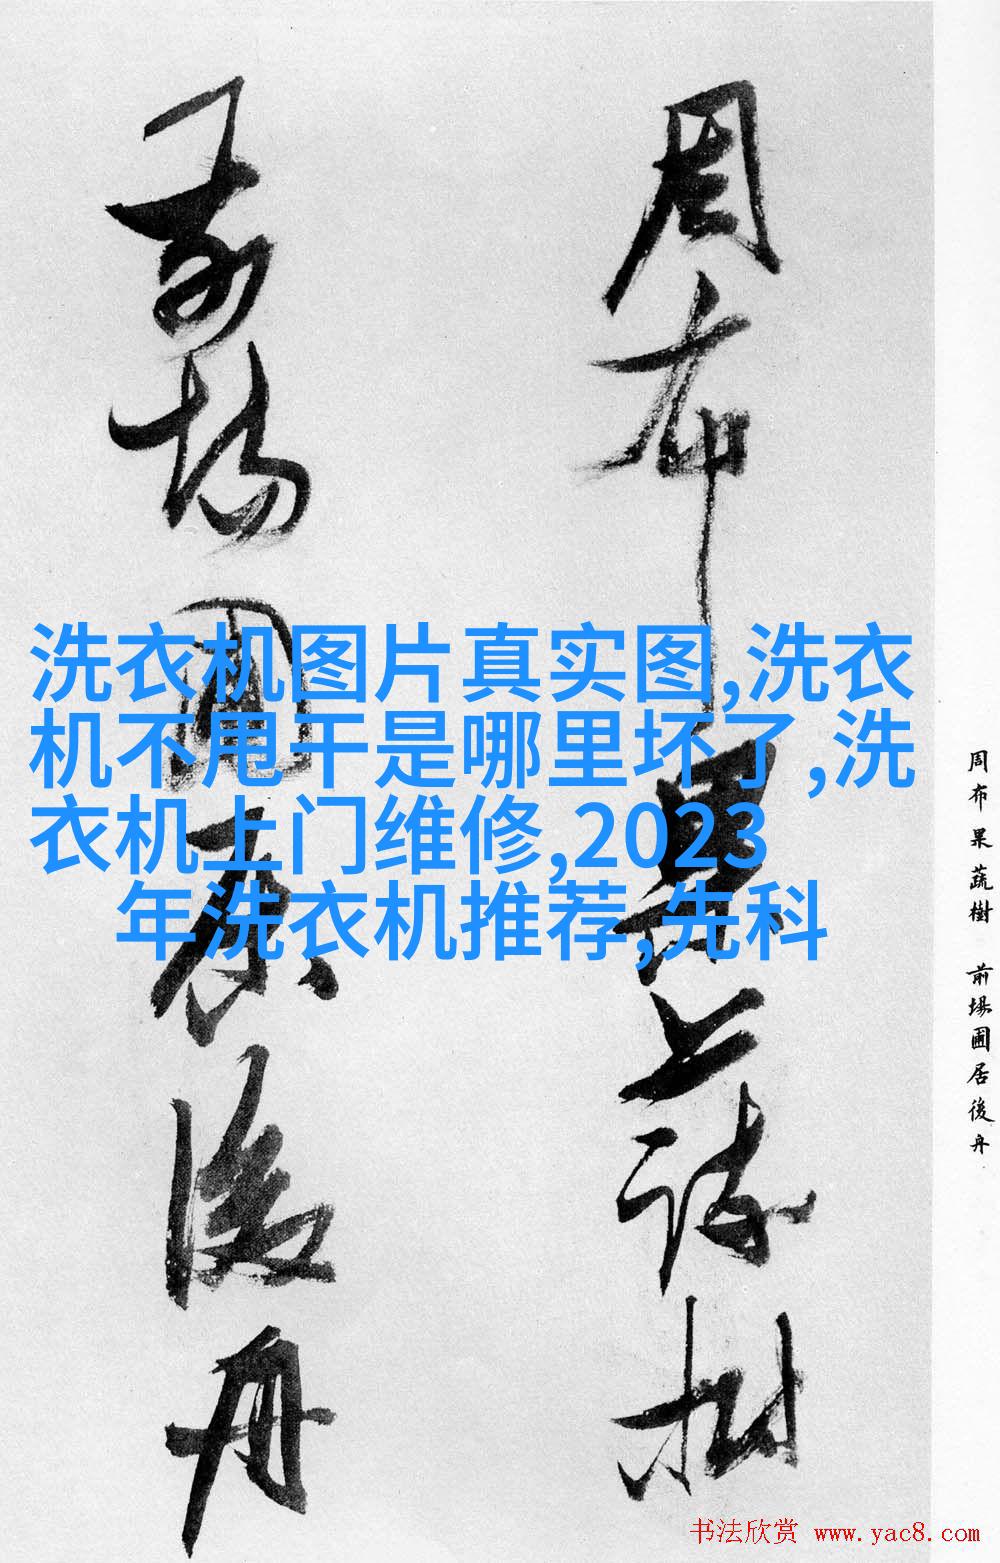 周布果蔬樹
前場圃居後舟
洗衣机图片真实图,洗衣
机不甩干是哪里坏了,洗
衣机上门维修,2023
年洗衣机推荐,先科
周布果蔬樹 前場圃居後舟
书法欣赏 www.yac8.com